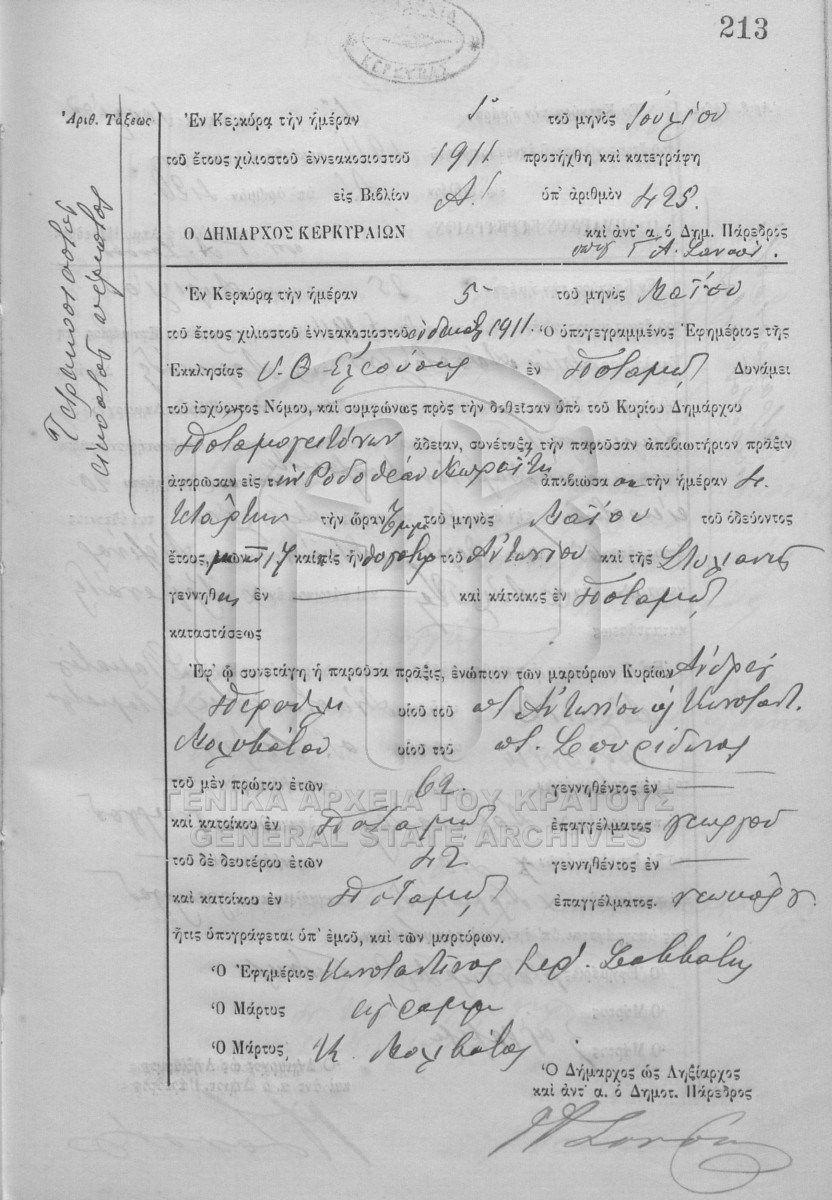 213
ΚΕΡΚΥΡΑΣ
Ἀριθ. Τάξεως
Τετρακοσιοστὸς
εἰκοστὸς πέμπτος
Ἐν Κερκύρᾳ τὴν ἡμέραν 1ῃ τοῦ μηνὸς Ἰουλίου
τοῦ ἔτους χιλιοστοῦ ἐννεακοσιοστοῦ 1911 προσήχθη καὶ κατεγράφη
εἰς Βιβλίον Α.′ ὑπ' ἀριθμὸν 425.
Ο ΔΗΜΑΡΧΟΣ ΚΕΡΚΥΡΑΙΩΝ καὶ ἀντ' α. ὁ Δημ. Πάρεδρος
Ἐν Κερκύρᾳ τὴν ἡμέραν 5 τοῦ μηνὸς Μαΐου
τοῦ ἔτους χιλιοστοῦ ἐννεακοσιοστοῦ ἑνδεκάτου 1911. Ὁ ὑπογεγραμμένος Ἐφημέριος τῆς
Ἐκκλησίας Υ. Θ. Ἐλεούσης ἐν Ποταμῷ Δυνάμει
τοῦ ἰσχύοντος Νόμου, καὶ συμφώνως πρὸς τὴν δοθεῖσαν ὑπὸ τοῦ Κυρίου Δημάρχου
Ποταμογειτόνων ἄδειαν, συνέταξα τὴν παροῦσαν ἀποβιωτήριον πρᾶξιν
ἀφορῶσαν εἰς τὴν Ροδοθέαν Μωραΐτη ἀποβιώσασαν τὴν ἡμέραν 4.
τετάρτην τὴν ὥραν τοῦ μηνὸς Μαΐου τοῦ ὁδεύοντος
ἔτους, 17 καὶ τὶς ἦν θυγάτηρ τοῦ Ἀντωνίου καὶ τῆς Στυλιανῆς
γεννηθεῖς ἐν — καὶ κάτοικος ἐν Ποταμῷ
καταστάσεως
Ἐφ' ᾧ συνετάγη ἡ παροῦσα πρᾶξις, ἐνώπιον τῶν μαρτύρων Κυρίων Ἀνδρέα
υἱοῦ τοῦ ποτ. Ἀντωνίου ϗ Κωνσταντ.
Μολυβάτου υἱοῦ τοῦ ποτ. Σπυρίδωνος
τοῦ μὲν πρώτου ἐτῶν 62. γεννηθέντος ἐν —
ΓΕΝΙΚΑ ΑΡΧΕΙΑ ΤΟΥ ΚΡΑΤΟΥΣ
καὶ κατοίκου ἐν Ποταμῷ ἐπαγγέλματος γεωργοῦ
GENERAL STATE ARCHIVES
τοῦ δὲ δευτέρου ἐτῶν 42 γεννηθέντος ἐν —
καὶ κατοίκου ἐν Ποταμῷ ἐπαγγέλματος.
ἥτις ὑπογράφεται ὑπ' ἐμοῦ, καὶ τῶν μαρτύρων.
Ὁ Ἐφημέριος Κωνσταντῖνος Ἱερ. Σαββάτης
Ὁ Μάρτυς ἀγράμμ.
Ὁ Μάρτυς, Κ. Μολιβάτος
Ὁ Δήμαρχος ὡς Ληξίαρχος
καὶ ἀντ' α. ὁ Δημοτ. Πάρεδρος